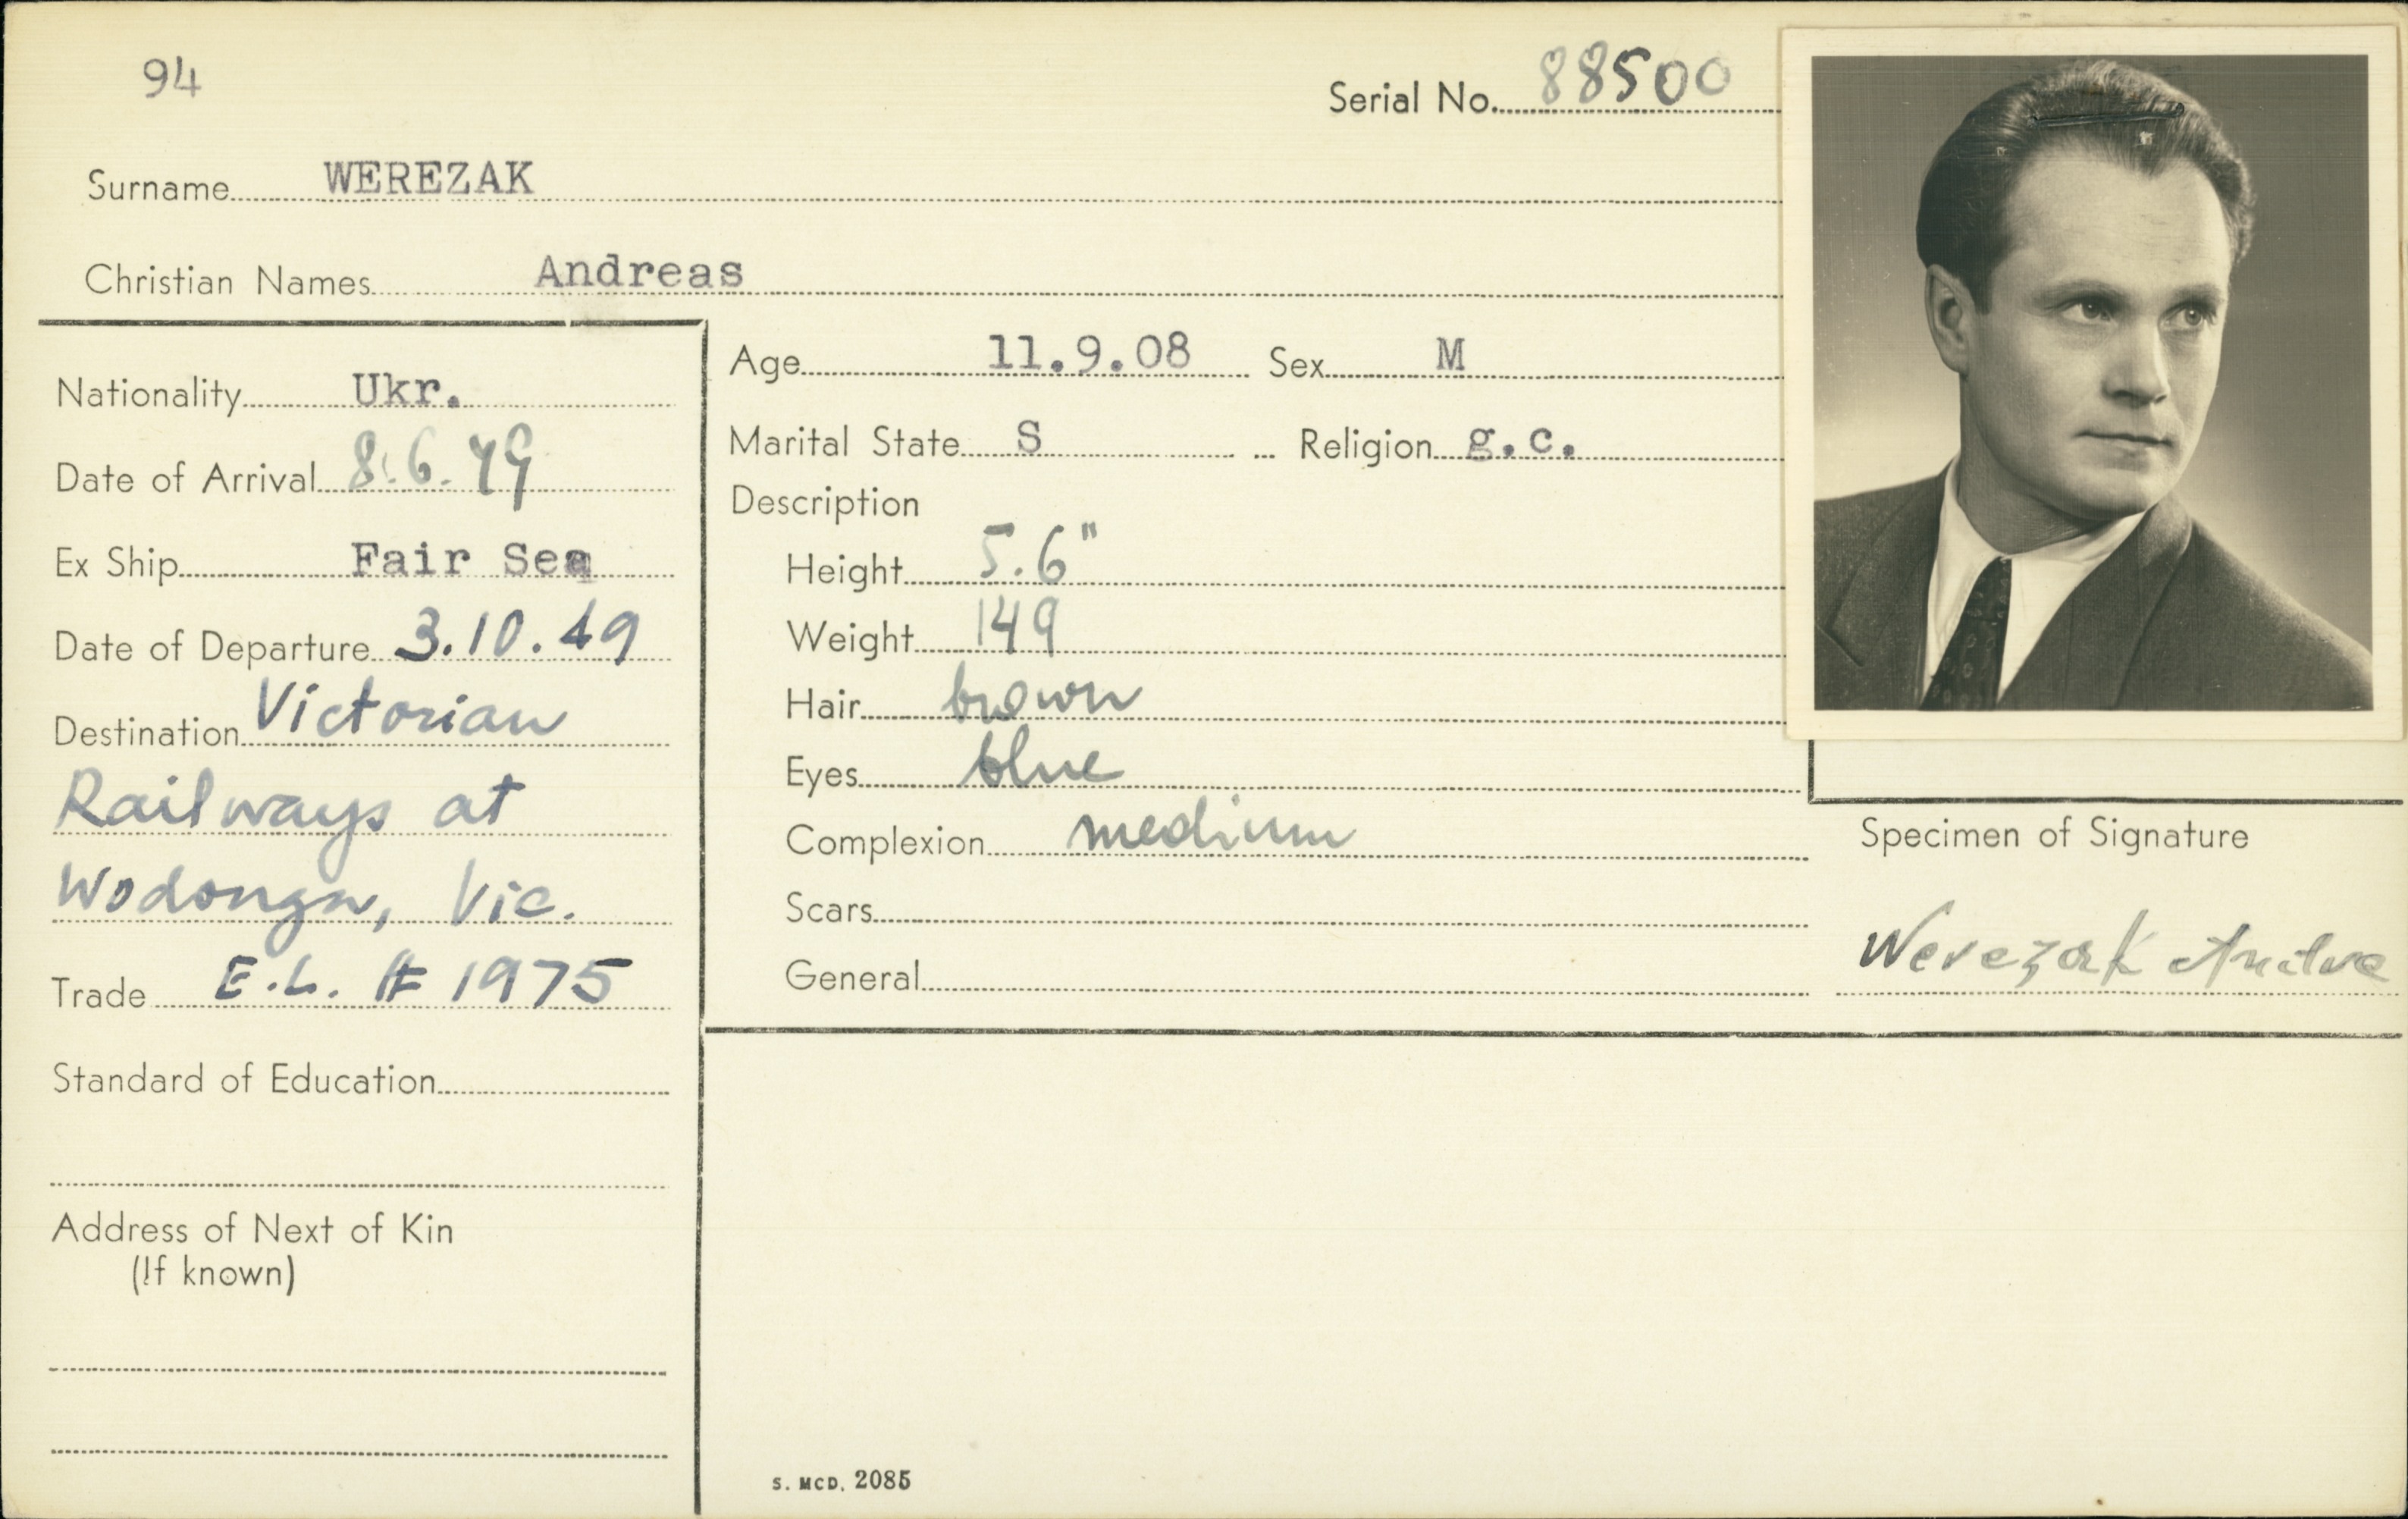 94
Serial No. 88500
Surname WEREZAK
Christian Names Andreas
Nationality Ukr.
Date of Arrival 8.6.49
Ex Ship Fair Sea
Date of Departure 3.10.49
Destination Victorian
Railways at
Wodonga, Vic.
Trade E.L. # 1975
Standard of Education
Address of Next of Kin
(If known)
Age 11.9.08 Sex M
Marital State S Religion g.c.
Description
Height 5.6"
Weight 149
Hair brown
Eyes blue
Complexion medium
Scars
General
Specimen of Signature
Werezak
S. MCD. 2085